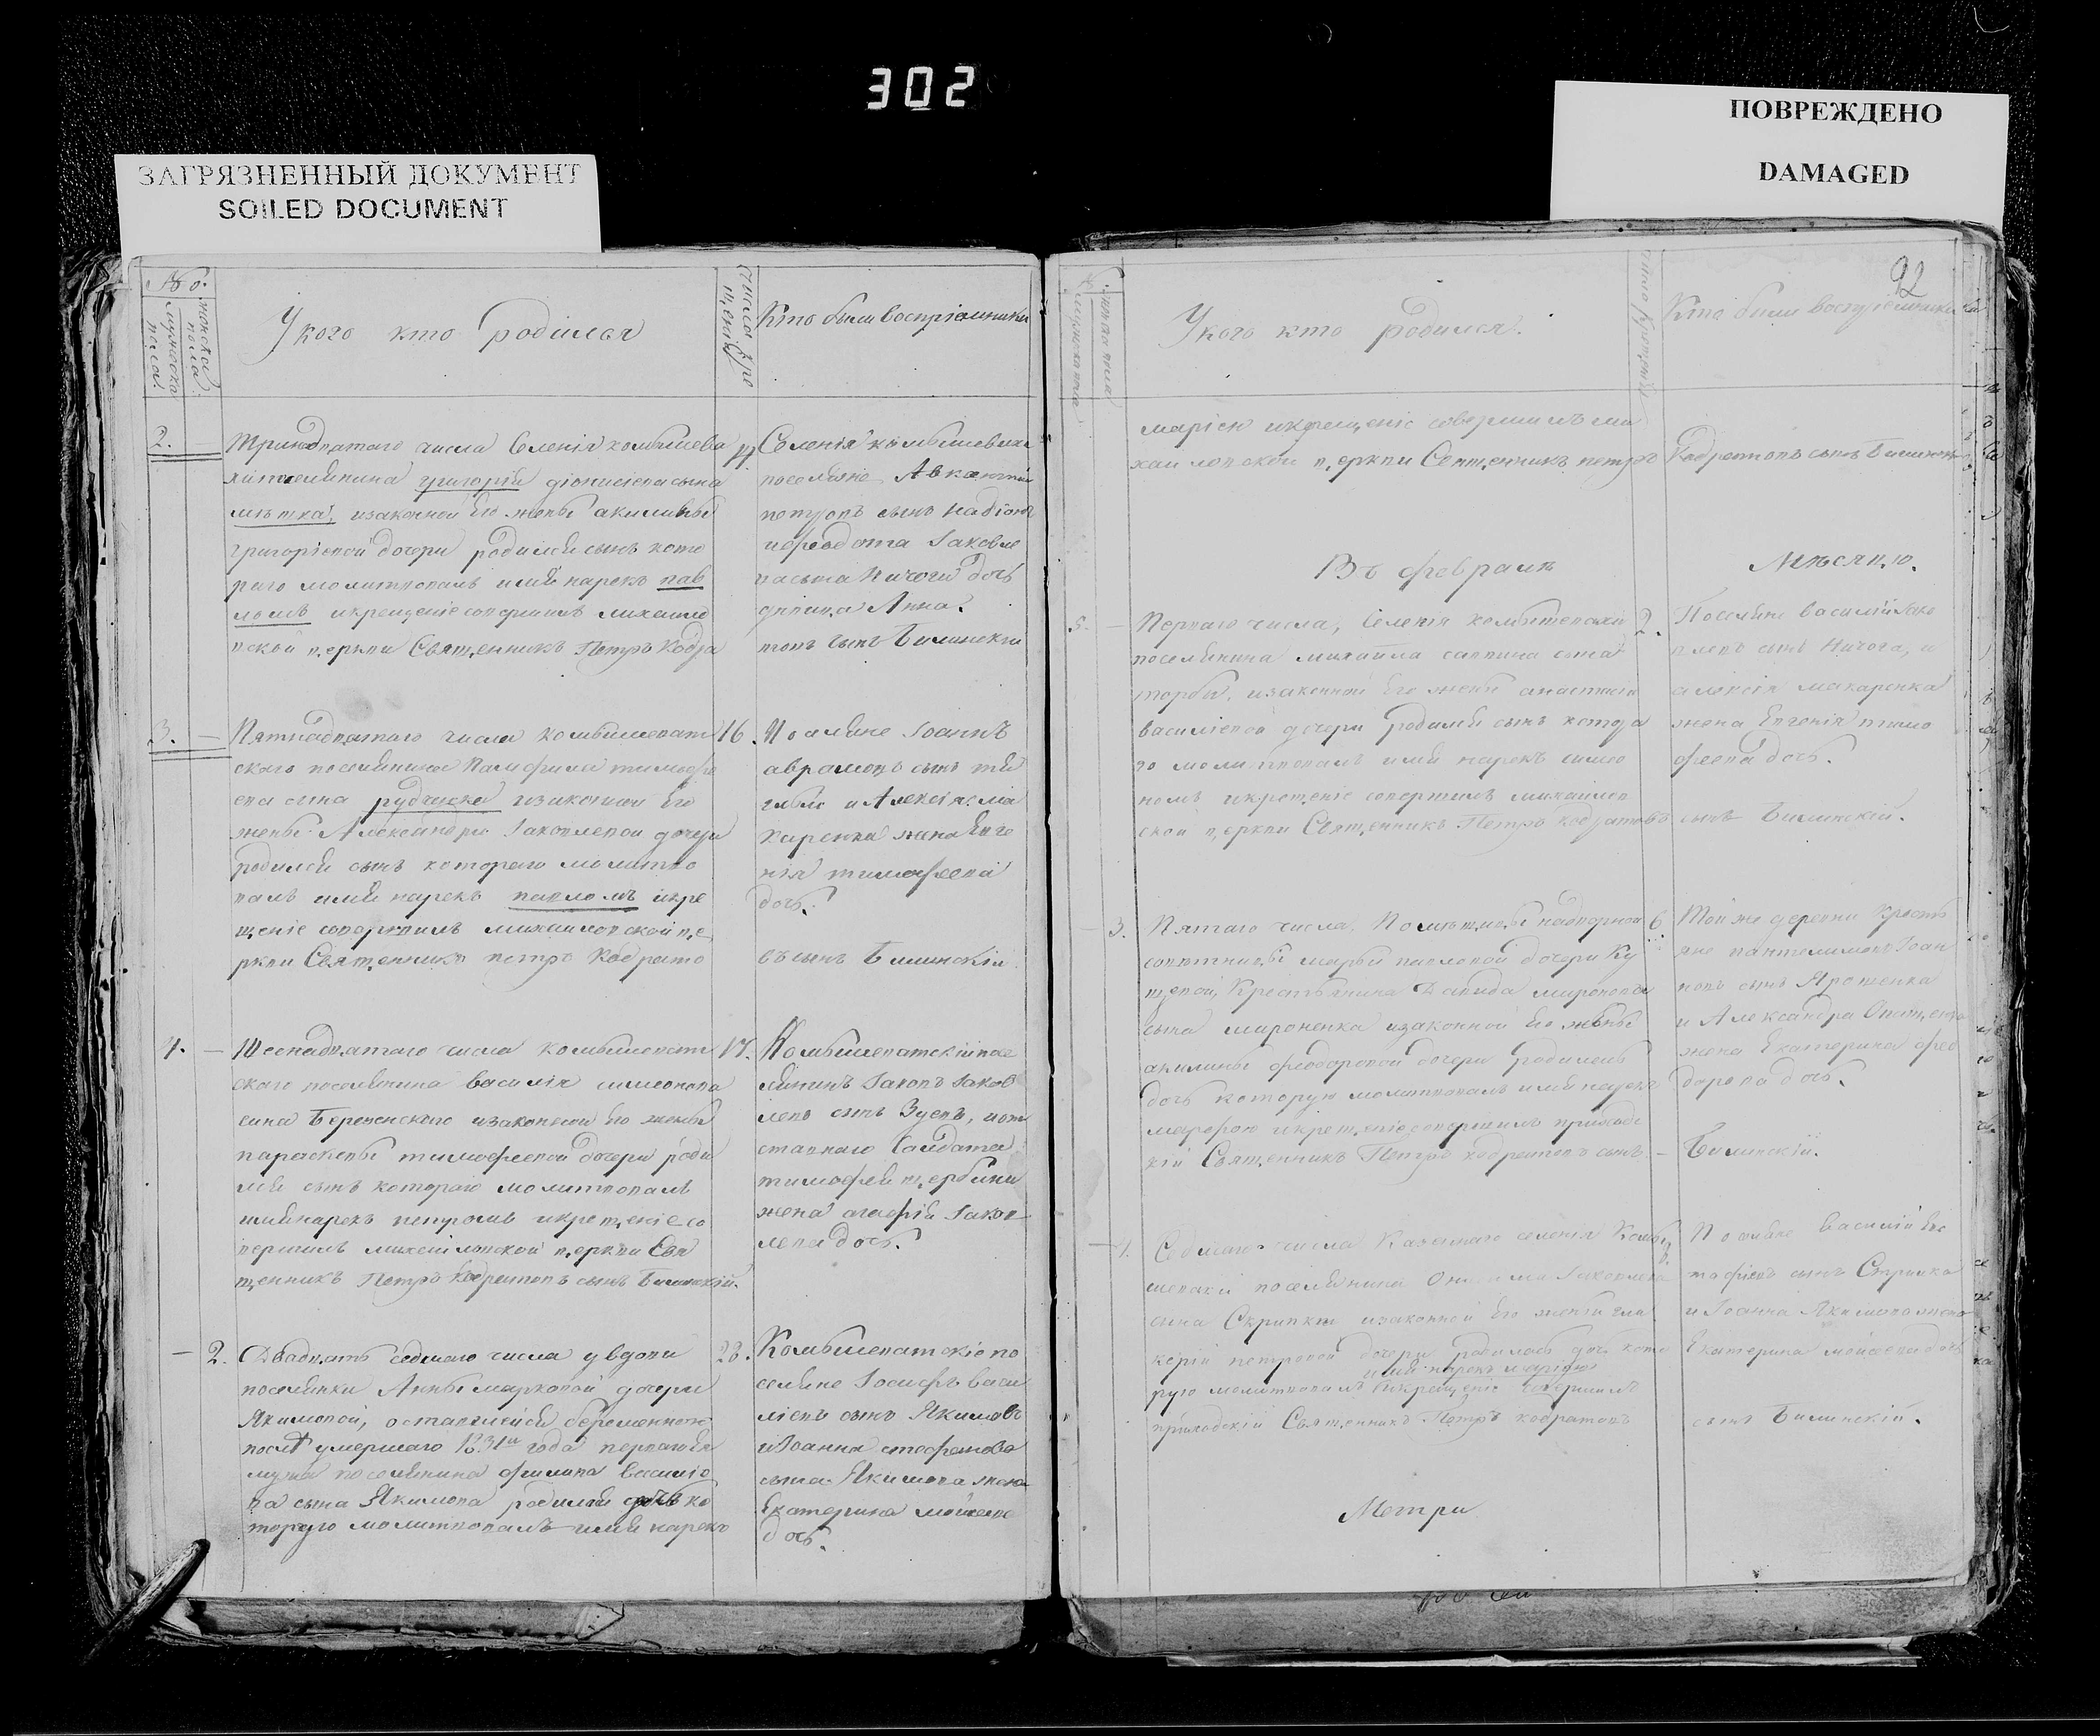 302
ЗАГРЯЗНЕННЫЙ ДОКУМЕНТ
SOILED DOCUMENT
ПОВРЕЖДЕНО
DAMAGED
№
мужеска пола.
женска пола.
У кого кто родился
число крещенія
Кто были воспріемники
2. Тринадцатаго числа Селенія комышева
григорій діонисіева сына
изаконной его жены акилины
григоріевой дочери родился сынъ кото
раго молитвовалъ имя нарекъ пав
ломъ икрещеніе совершилъ михаило
вской церкви Священникъ Петръ Кодра
14. Селенія
поселяне
петровъ сынъ
иѳеодота Іаковле
ва сына Ничоги дочь
дѣвица Анна.
товъ сынъ Билинскій
3. Пятнадцатаго числа комышеват
скаго поселянина Памфила тимофе
ева сына рудченка изаконной его
жены Александры Іаковлевой дочери
родился сынъ котораго молитво
валъ имя нарекъ павломъ икре
щеніе совершилъ михаиловской це
ркви Священникъ петръ Кодрато
16. Поселяне Іоаннъ
аврамовъ сынъ
и Алексія ма
каренка жена Евге
нія тимофеева
дочь.
въ сынъ Билинскій
4. Шеснадцатаго числа комышеват
скаго поселянина василія симеонова
сына изаконной его жены
параскевы тимофеевой дочери роди
лся сынъ котораго молитвовалъ
имя нарекъ петромъ икрещеніе со
вершилъ михаиловской церкви Свя
щенникъ Петръ Кодратовъ сынъ Билинскій.
17. Комышеватскій посе
лянинъ Іаковъ Іаков
левъ сынъ Зуевъ, иот
ставнаго Салдата
тимофея щербины
жена агафія Іаков
лева дочь.
2. Двадцать седмаго числа у вдовы
поселянки Анны марковой дочери
Якимовой, оставшейся беременною
послѣ умершаго 1831го года
мужа поселянина филипа василіе
ва сына Якимова родилась дочь ко
торую молитвовалъ имя нарекъ
28. Комышеватскіе по
селяне Іосифъ васи
ліевъ сынъ Якимовъ
иІоанна стефанова
сына Якимова жена
Екатерина мойсеева
дочь.
92
У кого кто родился.
Кто были воспріемники
маріею икрещеніе совершилъ ми
хаиловской церкви Священникъ петръ
Кодратовъ сынъ Билинскій
Въ февралѣ
Мѣсяцѣ.
5. Перваго числа, Селенія комышевахи
поселянина михаила саввина сына
торбы, изаконной его жены анастасіи
василіевой дочери родился сынъ котора
го молитвовалъ имя нарекъ симео
номъ икрещеніе совершилъ михаилов
ской церкви Священникъ Петръ кодратовъ
2. Поселяне василій Іако
влевъ сынъ Ничога, и
алексія макаренка
жена Евгенія тимо
феева дочь.
сынъ Билинскій.
3. Пятаго числа, Помѣщицы надворной
совѣтницы марьи павловой дочери Ку
щевой, Крестьянина Давида миронова
сына мироненка изаконной его жены
акилины ѳеодоровой дочери родилась
дочь которую молитвовалъ имя нарекъ
марфою икрещеніе совершилъ приход
скій Священникъ Петръ кодратовъ сынъ
6. Той же деревни Кресть
яне пантелимонъ Іоан
новъ сынъ Ярошенка
и Александра
жена Екатерина ѳео
дорова дочь.
Билинскій.
4. Седмаго числа Казеннаго селенія Комы
шевахи поселянина Онисима Іаковлева
сына Скрипки изаконной его жены гли
керіи петровой дочери родилась дочь кото
имя нарекъ маріею
рую молитвовалъ икрещеніе совершилъ
приходскій Священникъ Петръ кодратовъ
8. Поселяне василій Евс
тафіевъ сынъ Скрипка
и Іоанна Якимова жена
Екатерина мойсеева дочь
сынъ Билинскій.
Метри